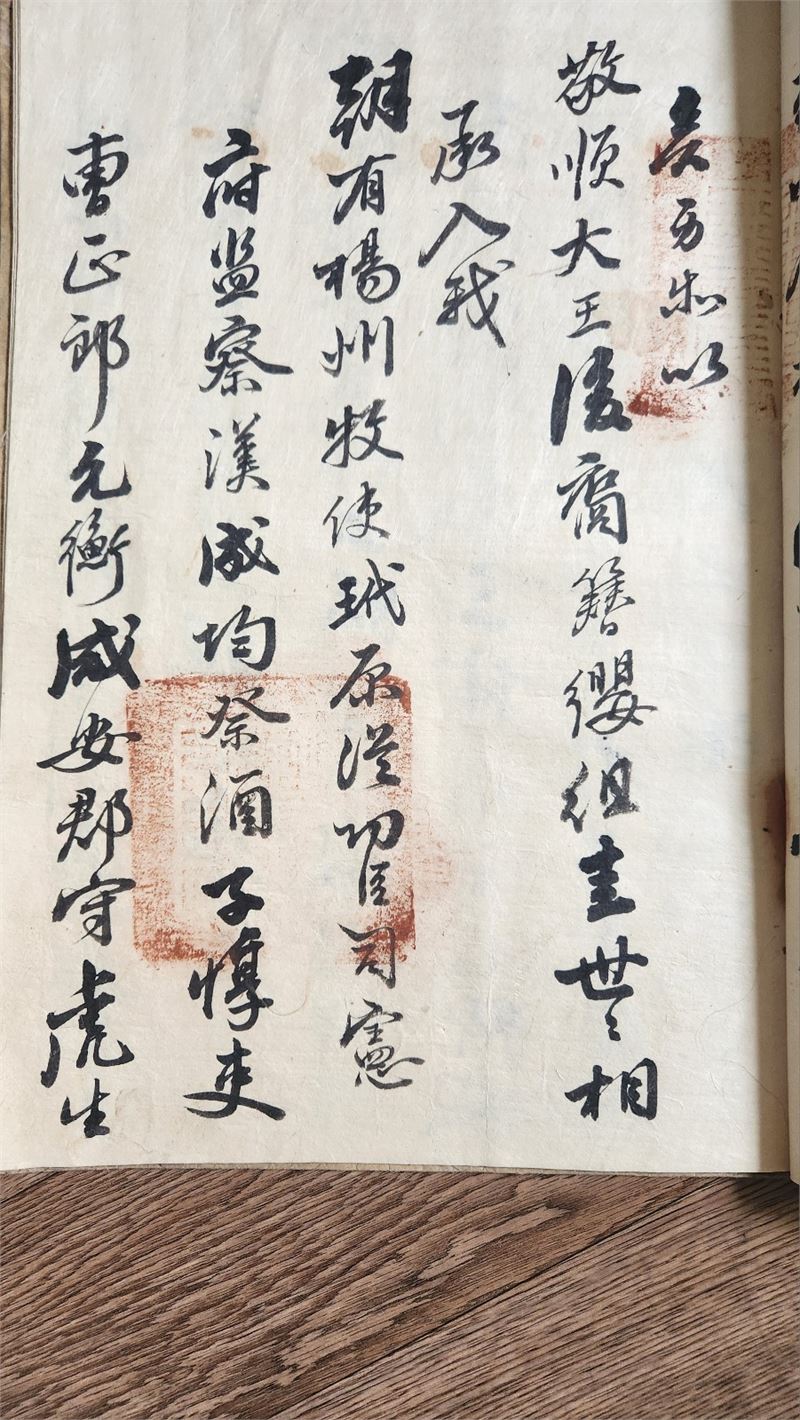 矣另尔以
敬順大王後裔簪纓組圭世〻相
承入我
朝有楊州牧使珖原從功臣司憲
府监察漢成均祭酒子惇吏
曺正郎元衡咸安郡守虎生